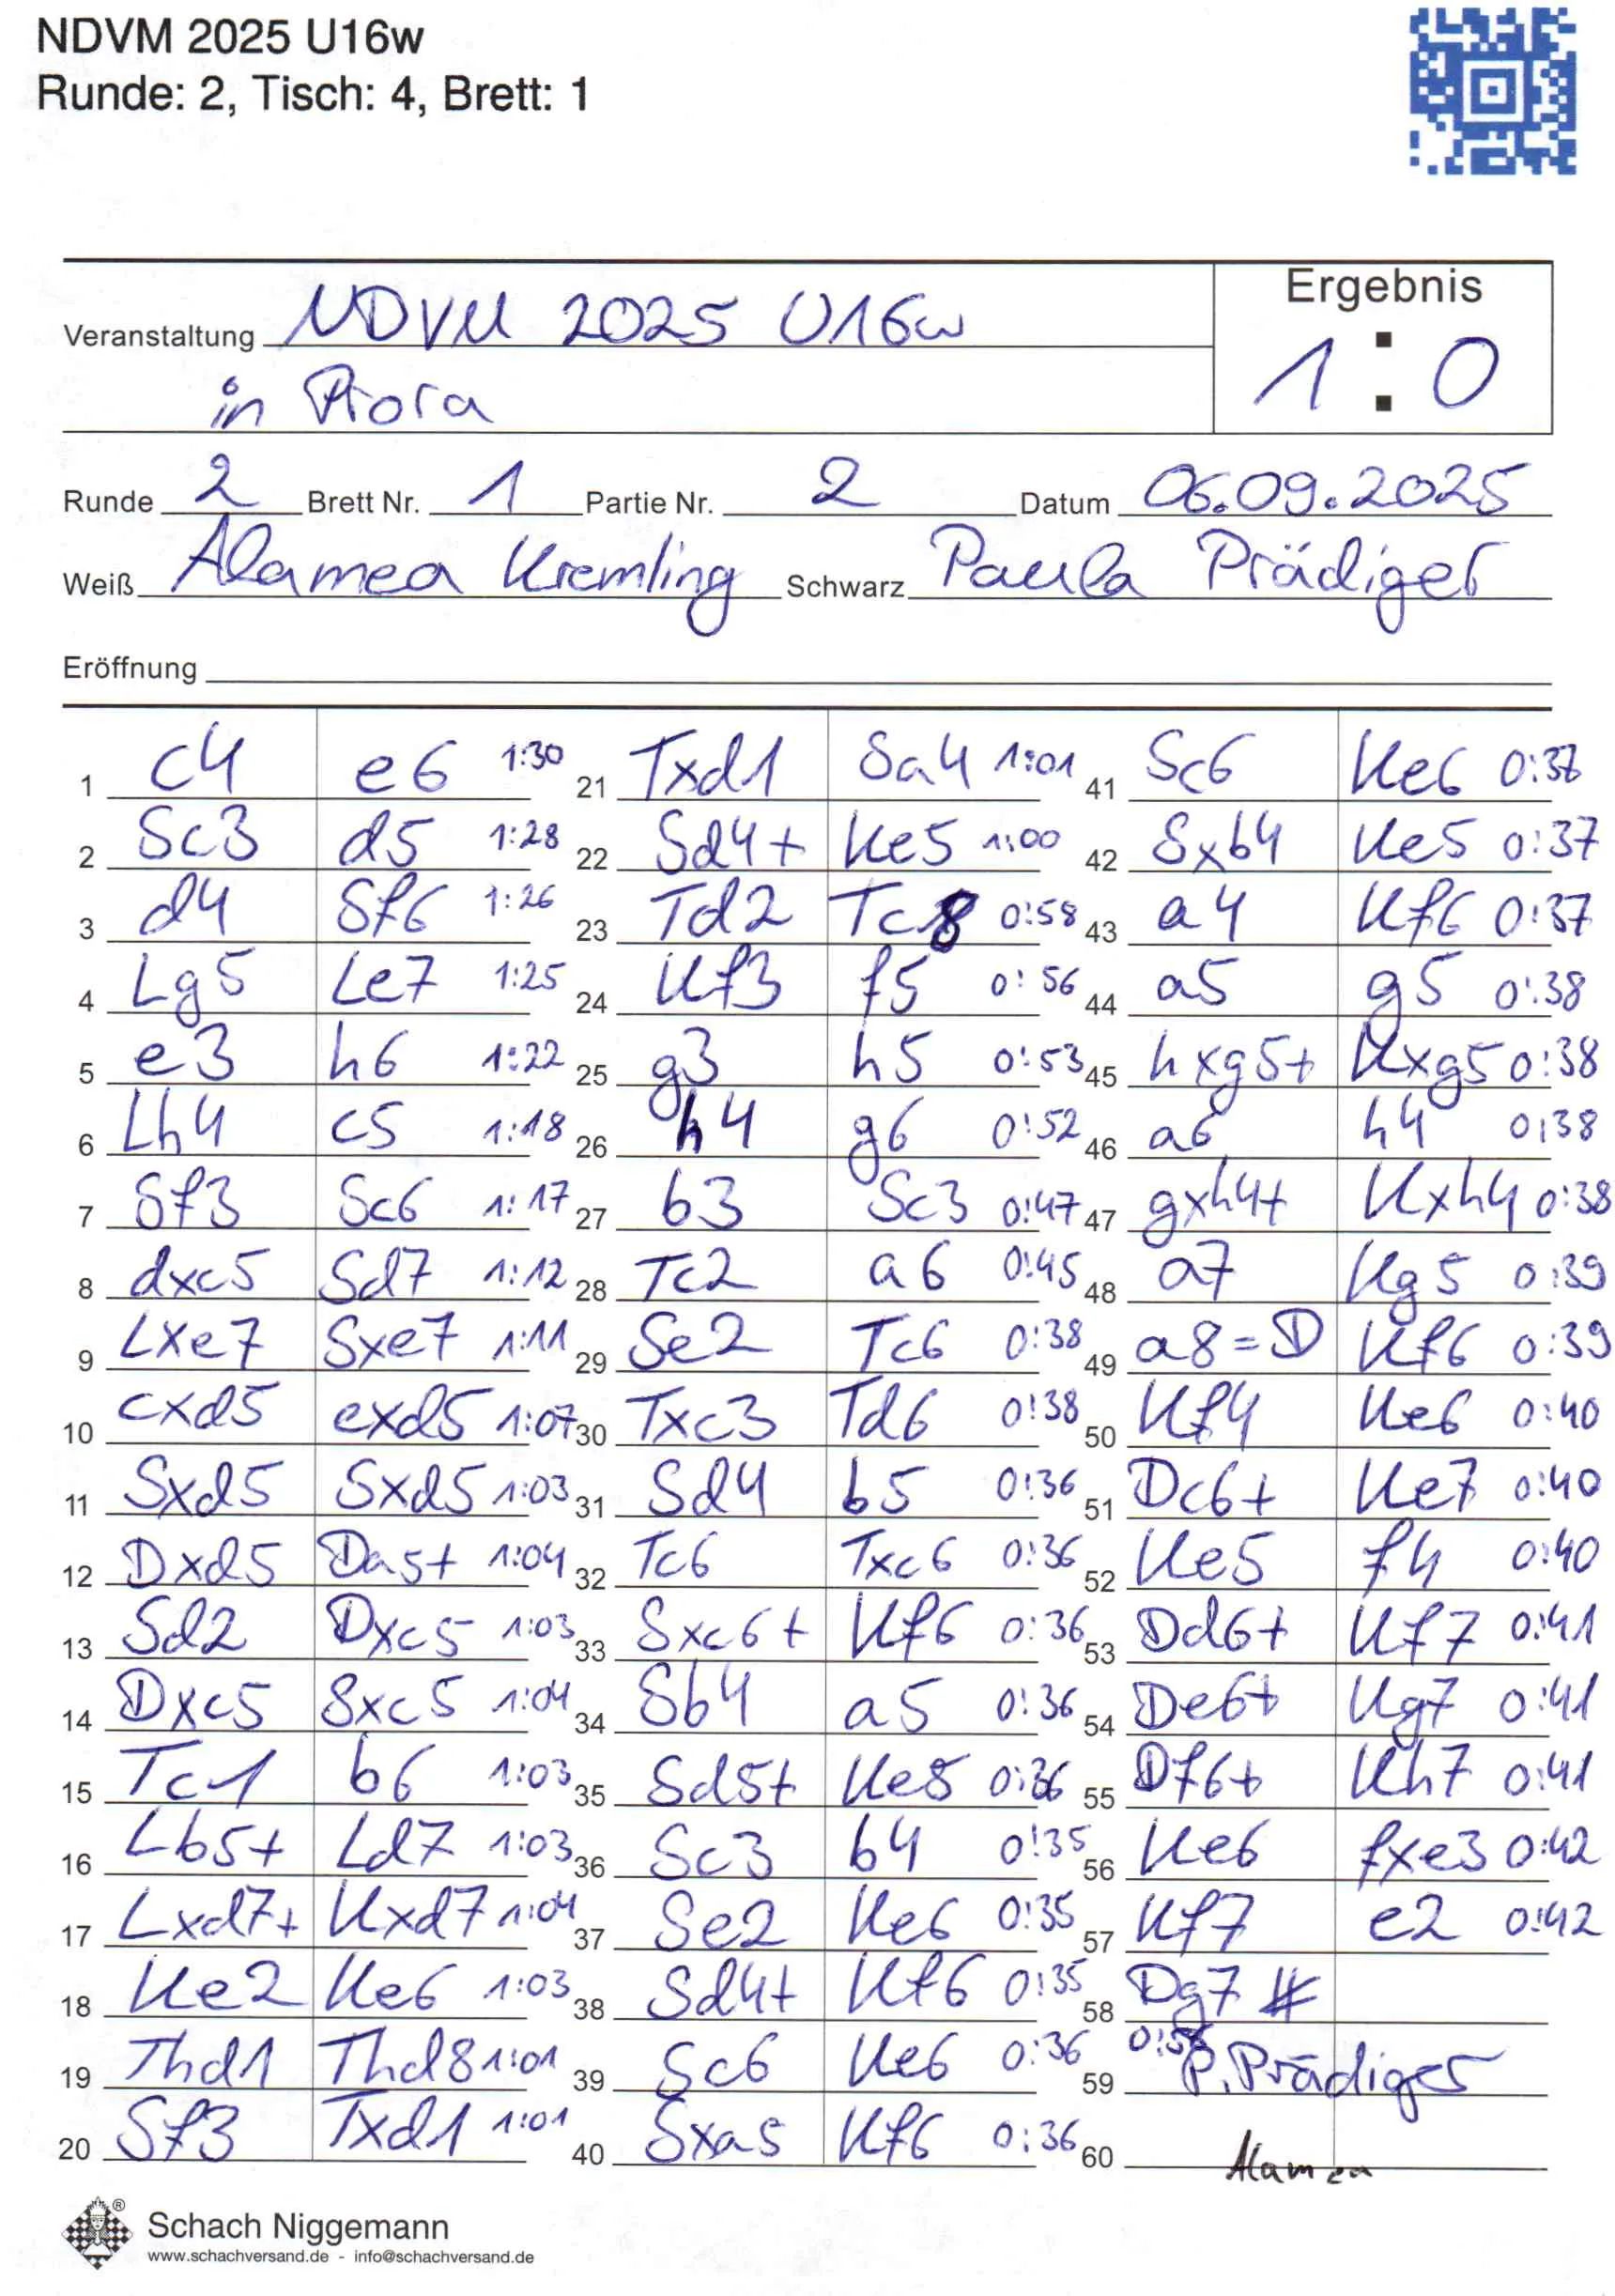 NDVM 2025 U16w
Runde: 2, Tisch: 4, Brett: 1
Ergebnis
Veranstaltung NDVM 2025 U16w
1 : 0
in Prora
Runde 2 Brett Nr. 1 Partie Nr. 2 Datum 06.09.2025
Weiß Alamea Kremling Schwarz Paula Prädiger
Eröffnung
1 c4 e6 1:30 21 Txd1 Sa4 1:01 41 Sc6 Ke6 0:37
2 Sc3 d5 1:28 22 Sd4+ Ke5 1:00 42 Sxb4 Ke5 0:37
3 d4 Sf6 1:26 23 Td2 Tc8 0:58 43 a4 Kf6 0:37
4 Lg5 Le7 1:25 24 Kf3 f5 0:56 44 a5 g5 0:38
5 e3 h6 1:22 25 g3 h5 0:53 45 hxg5+ Kxg5 0:38
6 Lh4 c5 1:18 26 h4 g6 0:52 46 a6 h4 0:38
7 Sf3 Sc6 1:17 27 b3 Sc3 0:47 47 gxh4+ Kxh4 0:38
8 dxc5 Sd7 1:12 28 Tc2 a6 0:45 48 a7 Kg5 0:39
9 Lxe7 Sxe7 1:11 29 Se2 Tc6 0:38 49 a8=D Kf6 0:39
10 cxd5 exd5 1:07 30 Txc3 Td6 0:38 50 Kf4 Ke6 0:40
11 Sxd5 Sxd5 1:03 31 Sd4 b5 0:36 51 Dc6+ Ke7 0:40
12 Dxd5 Da5+ 1:04 32 Tc6 Txc6 0:36 52 Ke5 f4 0:40
13 Sd2 Dxc5 1:03 33 Sxc6+ Kf6 0:36 53 Dd6+ Kf7 0:41
14 Dxc5 Sxc5 1:04 34 Sb4 a5 0:36 54 De6+ Kg7 0:41
15 Tc1 b6 1:03 35 Sd5+ Ke5 0:36 55 Df6+ Kh7 0:41
16 Lb5+ Ld7 1:03 36 Sc3 b4 0:35 56 Ke6 fxe3 0:42
17 Lxd7+ Kxd7 1:04 37 Se2 Ke6 0:35 57 Kf7 e2 0:42
18 Ke2 Ke6 1:03 38 Sd4+ Kf6 0:35 58 Dg7 #
19 Thd1 Thd8 1:01 39 Sc6 Ke6 0:36 59 P. Prädiger
20 Sf3 Txd1 1:01 40 Sxa5 Kf6 0:36 60 Alamea
Schach Niggemann
www.schachversand.de - info@schachversand.de